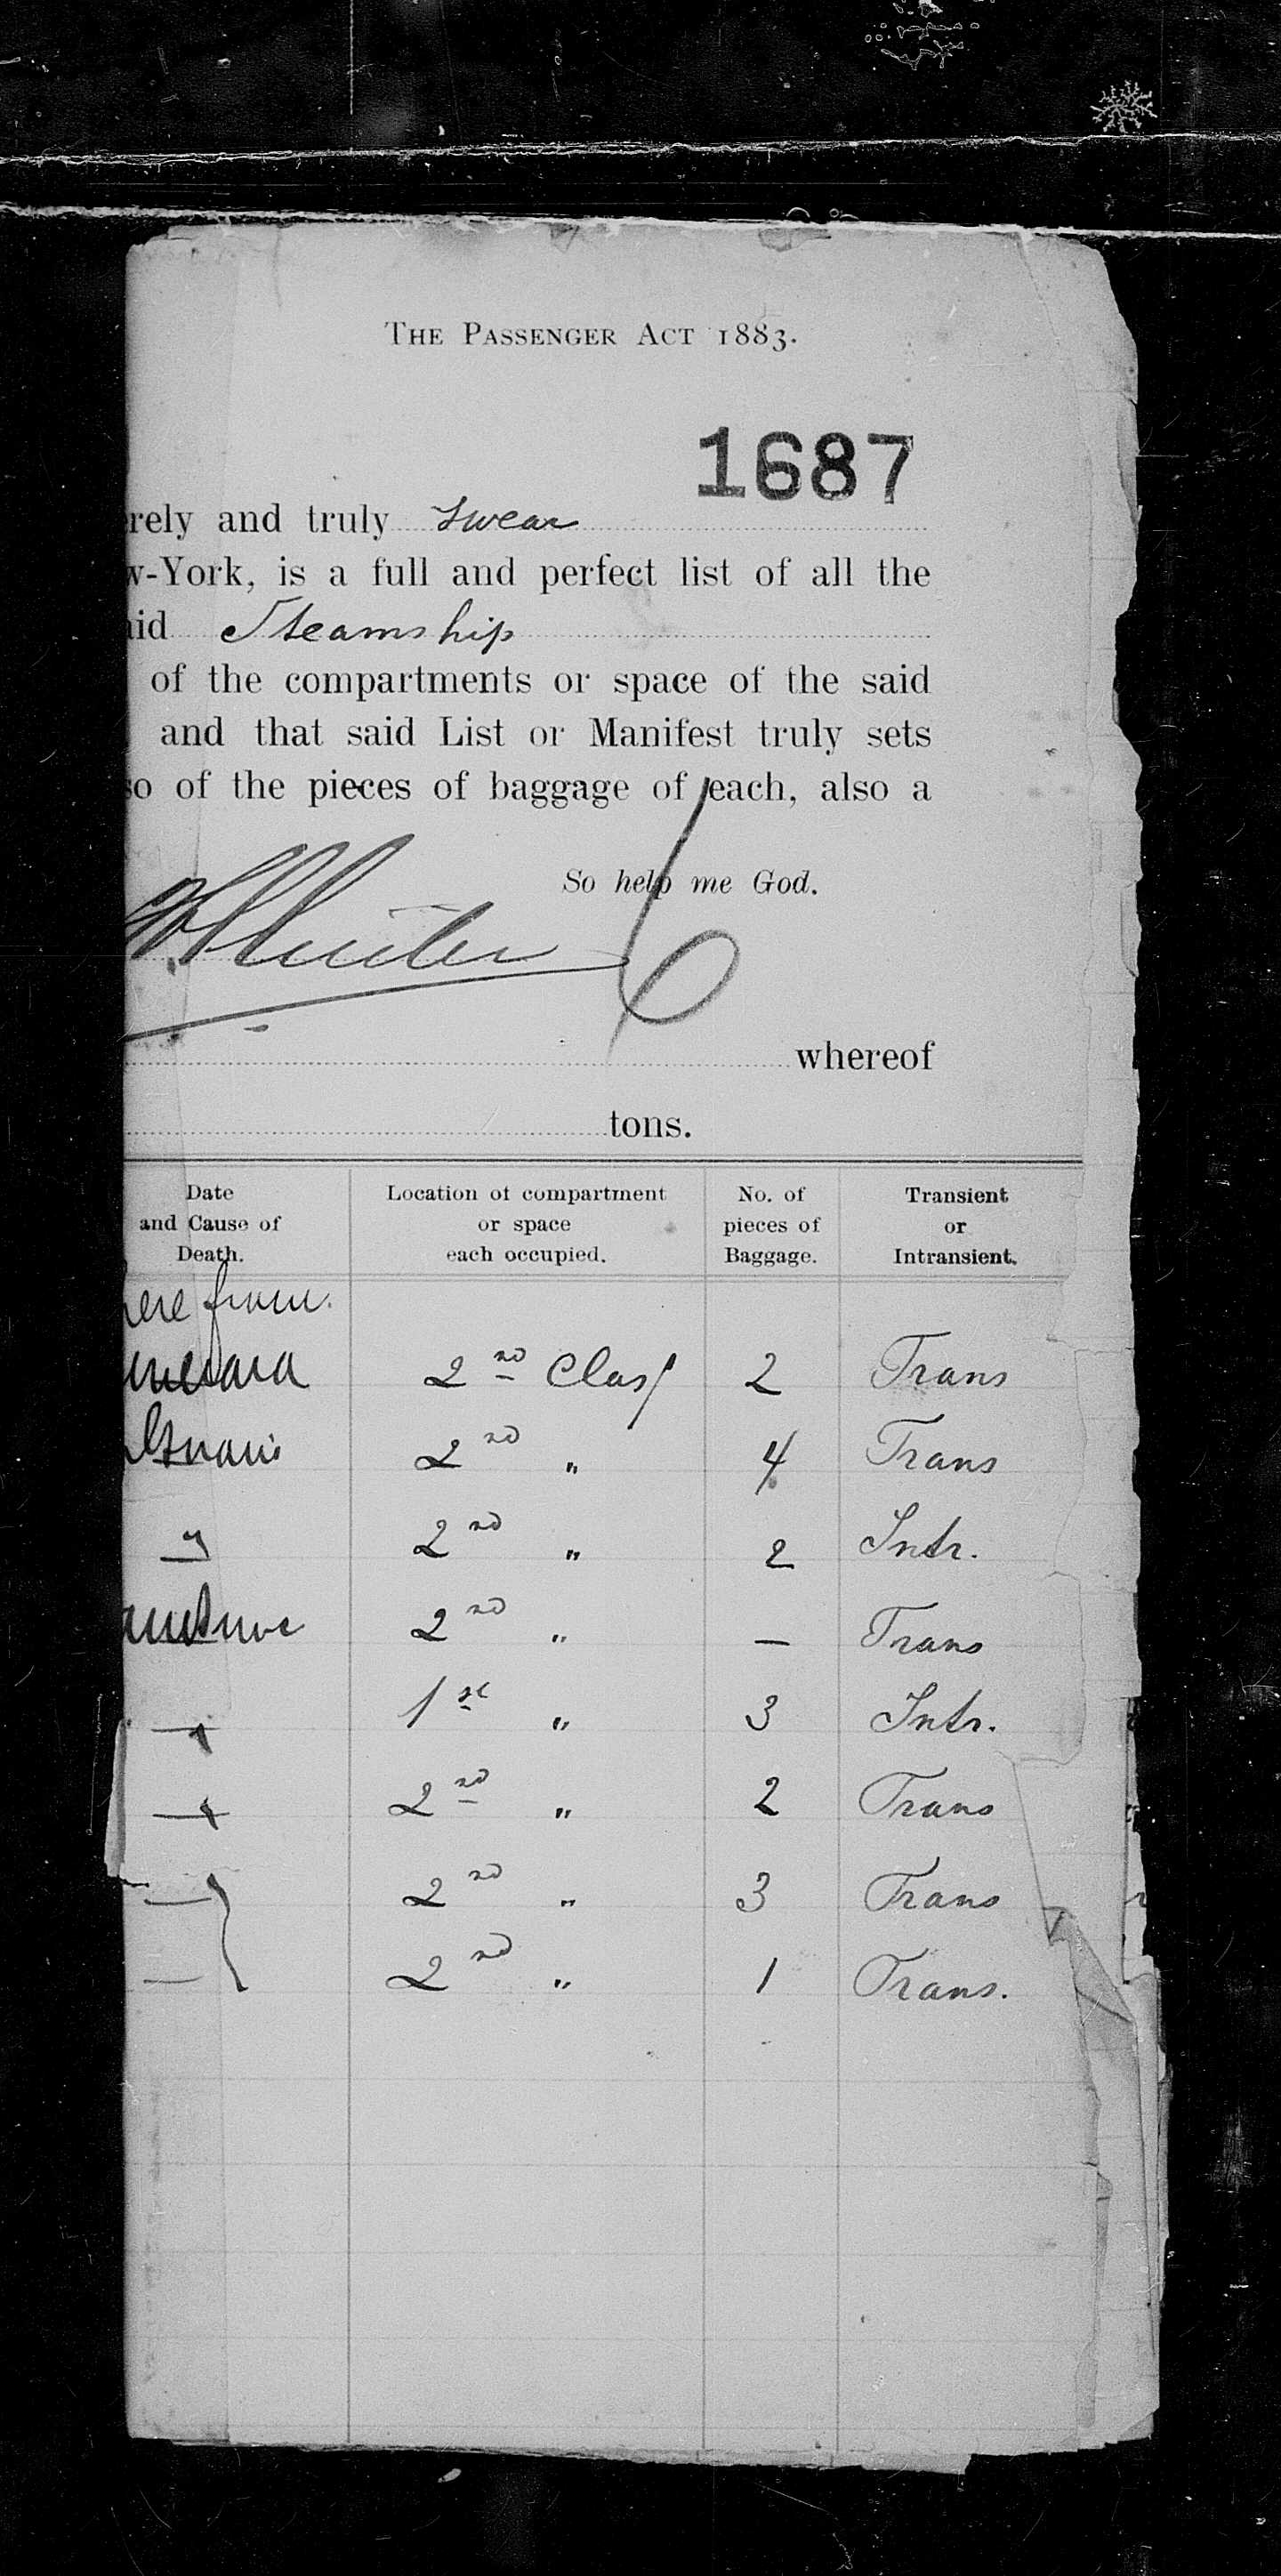 THE PASSENGER ACT 1883.
1687
rely and truly swear
w-York, is a full and perfect list of all the
aid Steamship
of the compartments or space of the said
and that said List or Manifest truly sets
so of the pieces of baggage of each, also a
So help me God.
6
whereof
tons.
Date and Cause of Death. Location of compartment or space each occupied. No. of pieces of Baggage. Transient or Intransient.
ere from
2nd Class 2 Trans
2nd " 4 Trans
" 2nd " 2 Intr.
2nd " — Trans
1st " 3 Intr.
2nd " 2 Trans
— 2nd " 3 Trans
— 2nd " 1 Trans.